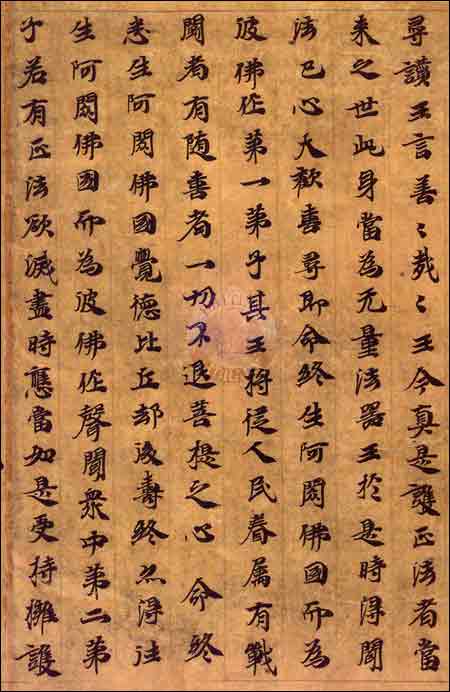 尋讃王言善〻哉〻王今真是護正法者當
来之世此身當為无量法器王於是時得聞
法已心大歡喜尋即命終生阿閦佛國而為
彼佛作第一第子其王將従人民眷属有戰
闘者有随喜者一切不退菩提之心命終
悉生阿閦佛國覺德比丘却後壽終亦得往
生阿閦佛國而為彼佛作聲聞衆中第二第
子若有正法欲滅盡時應當如是受持擁護